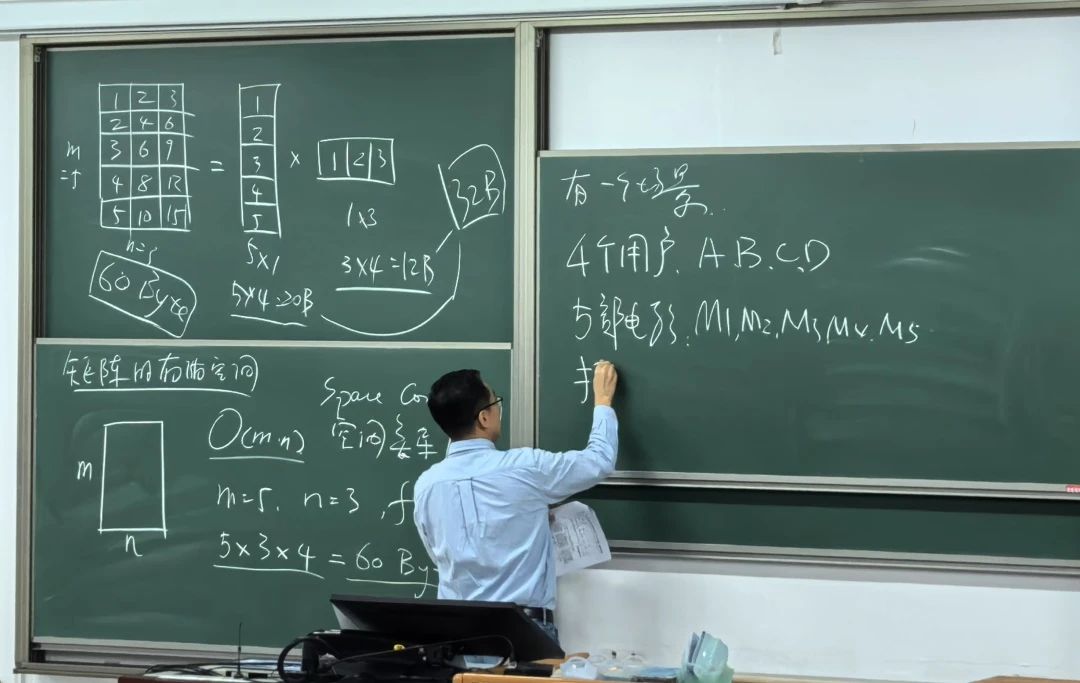 1 2 3
2 4 6
3 6 9
4 8 12
5 10 15
m=5
n=3
60 Byte
=
1
2
3
4
5
5×1
5×4=20B
×
1 2 3
1×3
3×4=12B
32B
矩阵的存储空间
m
n
Space Co
O(m·n)
空间复杂
m=5. n=3, f
5×3×4=60 By
有一个场景.
4个用户. A.B.C.D
5部电影. M1,M2,M3,M4,M5